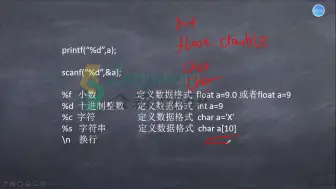 int
float double
char
char
printf("%d",a);
scanf("%d",&a);
%f 小数 定义数据格式 float a=9.0 或者float a=9
%d 十进制整数 定义数据格式 int a=9
%c 字符 定义数据格式 char a='X'
%s 字符串 定义数据格式 char a[10]
\n 换行